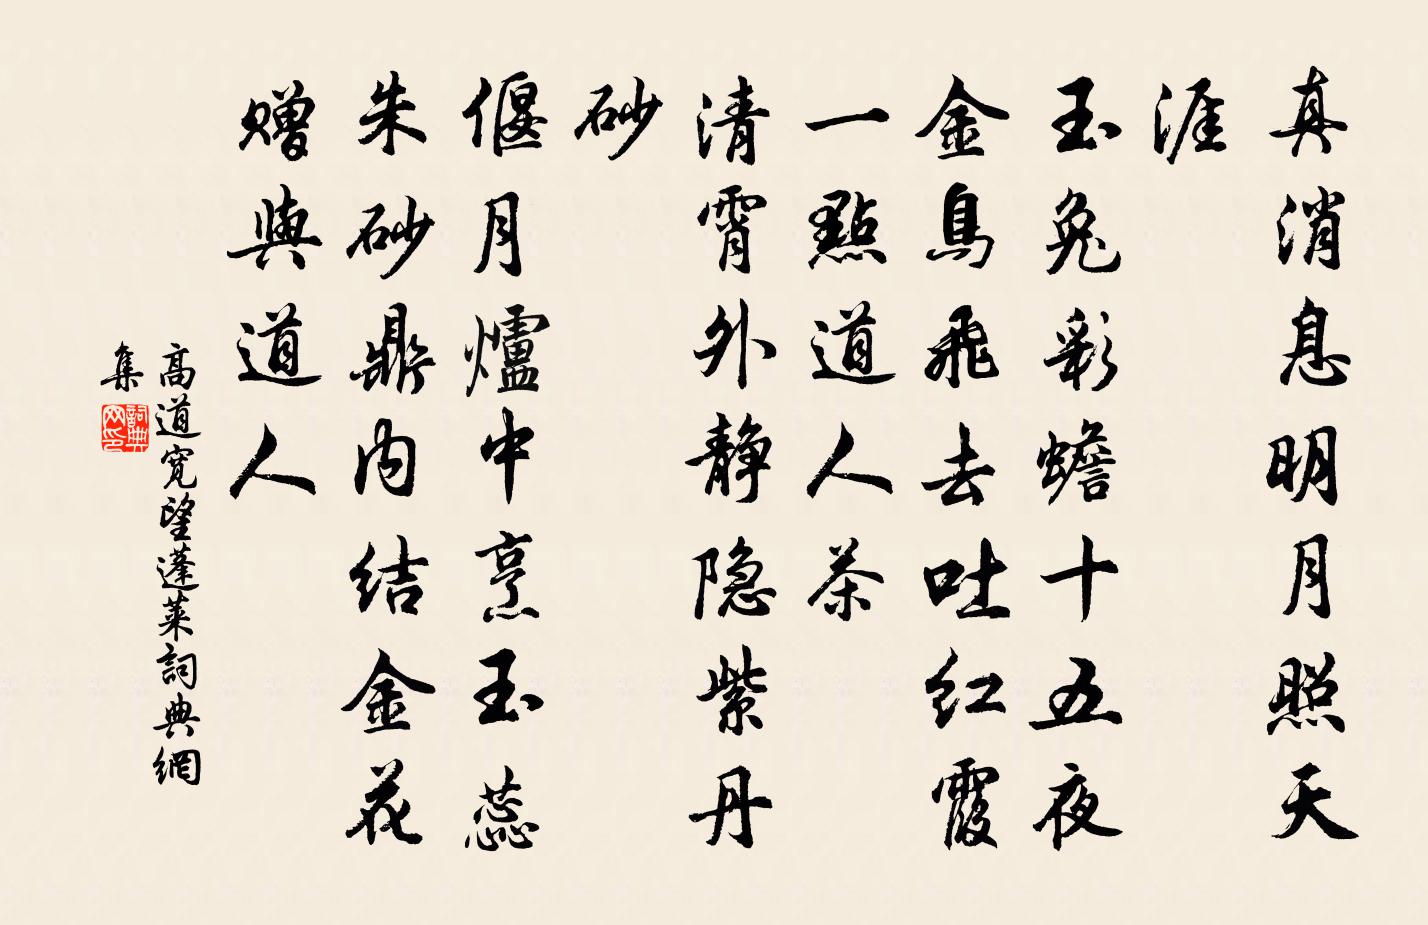 真消息明月照天
涯
玉兔彩蟾十五夜
金烏飛去吐红霞
一點道人茶
清霄外静隐紫丹
砂
偃月爐中烹玉蕊
朱砂鼎内结金花
赠與道人
高道宽望蓬莱詞典網
集
詞典网印